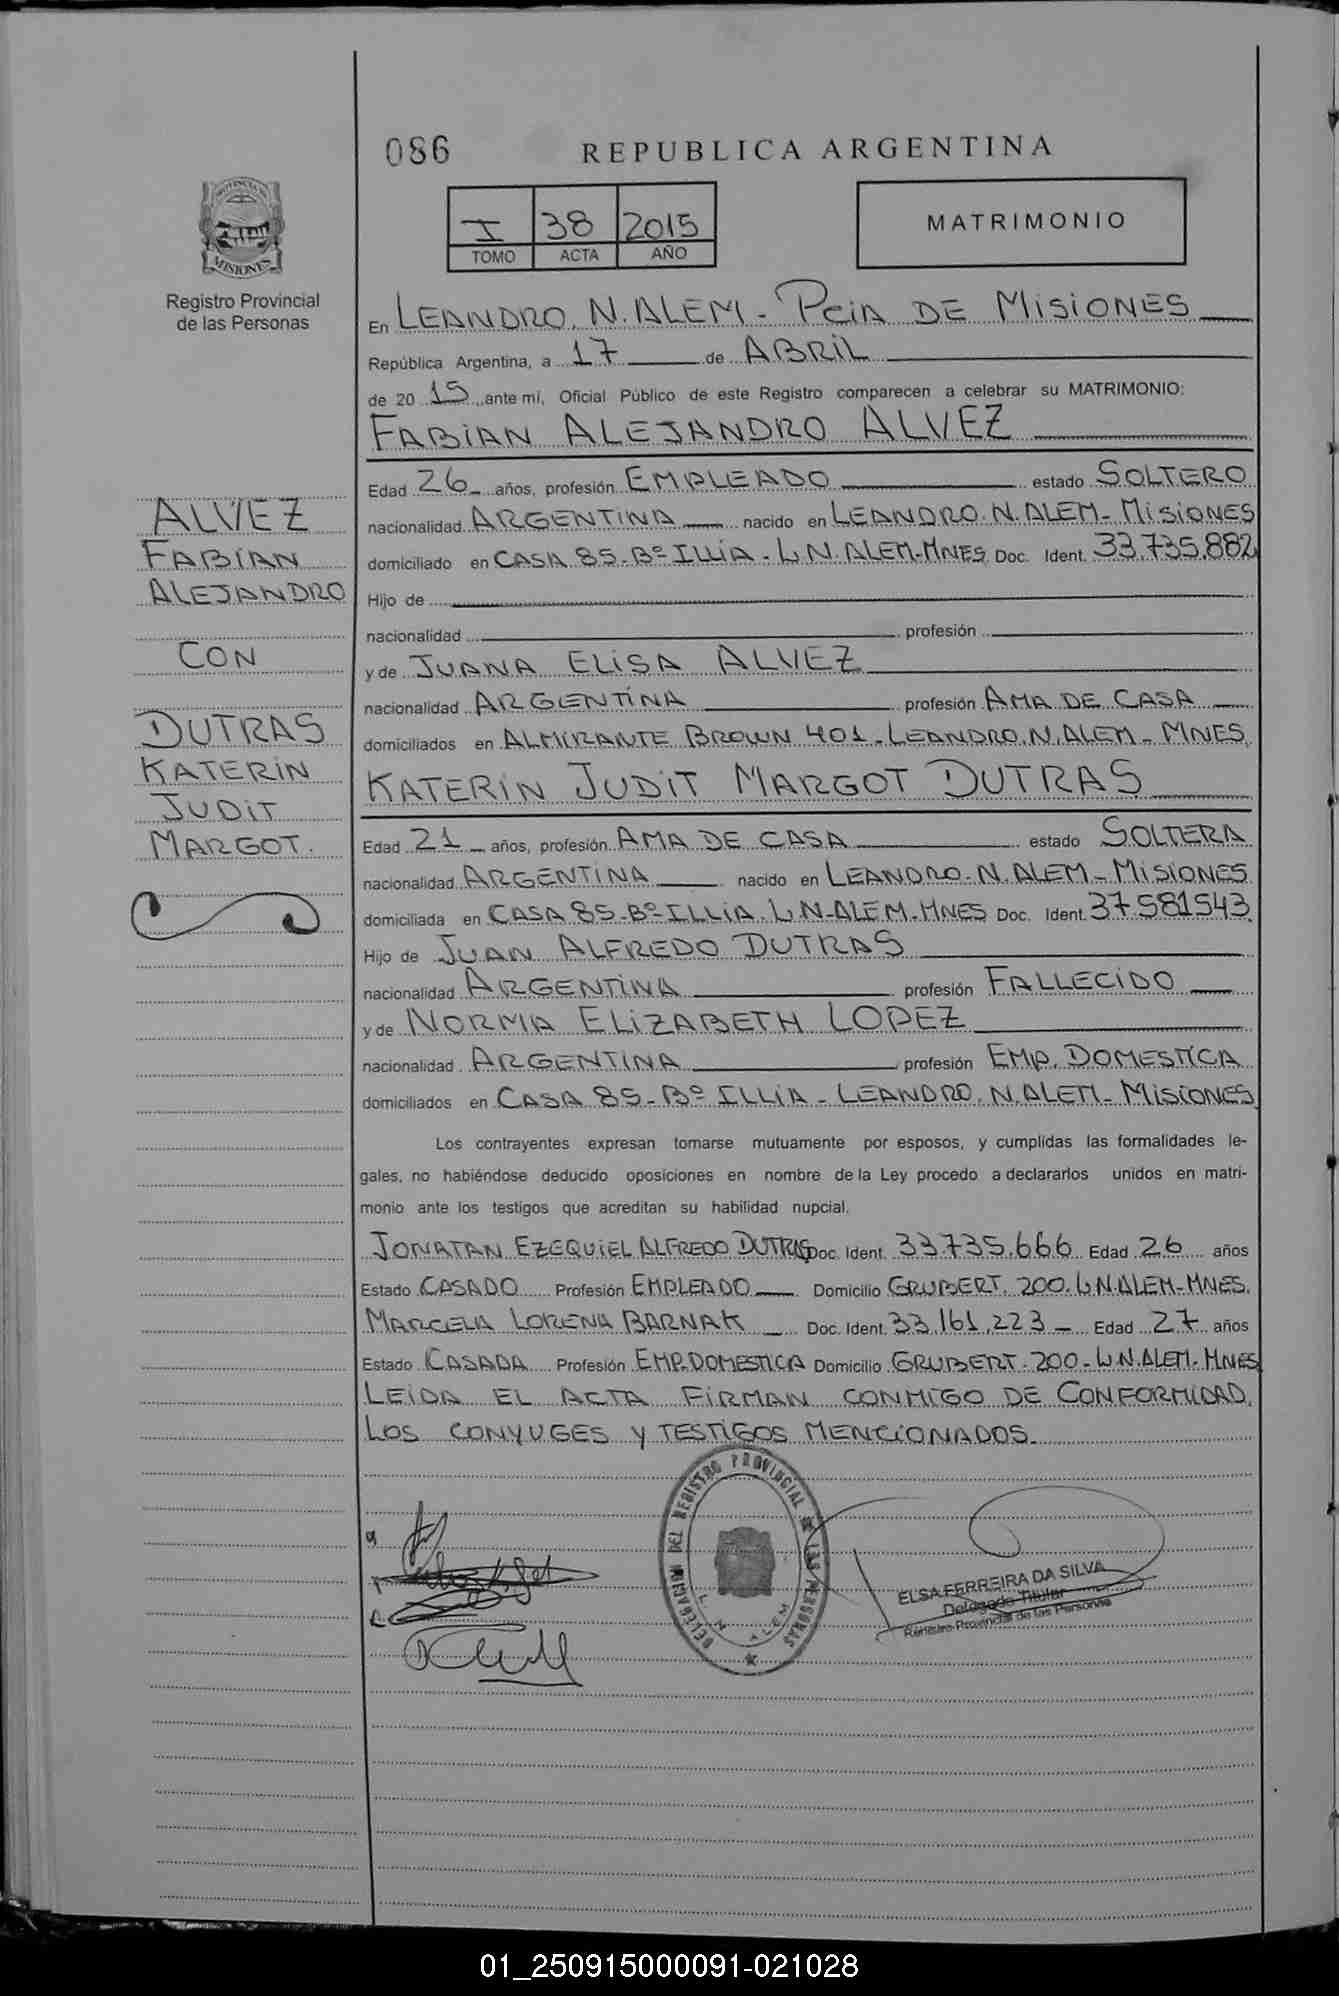 086
REPUBLICA ARGENTINA
PROVINCIA DE
MISIONES
Registro Provincial
de las Personas
I 38 2015
TOMO ACTA AÑO
MATRIMONIO
En LEANDRO. N. ALEM - PCIA DE MISIONES
República Argentina, a 17 de ABRIL
de 20 15 ante mí, Oficial Público de este Registro comparecen a celebrar su MATRIMONIO:
FABIAN ALEJANDRO ALVEZ
Edad 26 años, profesión EMPLEADO estado SOLTERO
nacionalidad ARGENTINA nacido en LEANDRO. N. ALEM - MISIONES
domiciliado en CASA 85 - Bº ILLIA - L N. ALEM - MNES. Doc. Ident. 33.735.882
Hijo de
nacionalidad profesión
y de JUANA ELISA ALVEZ
nacionalidad ARGENTINA profesión AMA DE CASA
domiciliados en ALMIRANTE BROWN 401 - LEANDRO. N. ALEM - MNES.
KATERIN JUDIT MARGOT DUTRAS
Edad 21 años, profesión AMA DE CASA estado SOLTERA
nacionalidad ARGENTINA nacido en LEANDRO. N. ALEM - MISIONES
domiciliada en CASA 85 - Bº ILLIA. L N - ALEM - MNES Doc. Ident. 37.581543
Hijo de JUAN ALFREDO DUTRAS
nacionalidad ARGENTINA profesión FALLECIDO
y de NORMA ELIZABETH LOPEZ
nacionalidad ARGENTINA profesión EMP. DOMESTICA
domiciliados en CASA 85 - Bº ILLIA - LEANDRO. N. ALEM - MISIONES
Los contrayentes expresan tomarse mutuamente por esposos, y cumplidas las formalidades le-
gales, no habiéndose deducido oposiciones en nombre de la Ley procedo a declararlos unidos en matri-
monio ante los testigos que acreditan su habilidad nupcial.
JONATAN EZEQUIEL ALFREDO DUTRAS Doc. Ident. 33.735.666 Edad 26 años
Estado CASADO Profesión EMPLEADO Domicilio GRUBERT. 200. L N. ALEM - MNES.
MARCELA LORENA BARNAK Doc. Ident. 33.161.223 Edad 27 años
Estado CASADA Profesión EMP. DOMESTICA Domicilio GRUBERT - 200 - L N. ALEM - MNES
LEIDA EL ACTA FIRMAN CONMIGO DE CONFORMIDAD.
LOS CONYUGES Y TESTIGOS MENCIONADOS.
ALVEZ
FABIAN
ALEJANDRO
CON
DUTRAS
KATERIN
JUDIT
MARGOT.
DELEGACION DEL REGISTRO PROVINCIAL DE LAS PERSONAS
L. N. ALEM
ELSA FERREIRA DA SILVA
Delegado Titular
Registro Provincial de las Personas
01_250915000091-021028